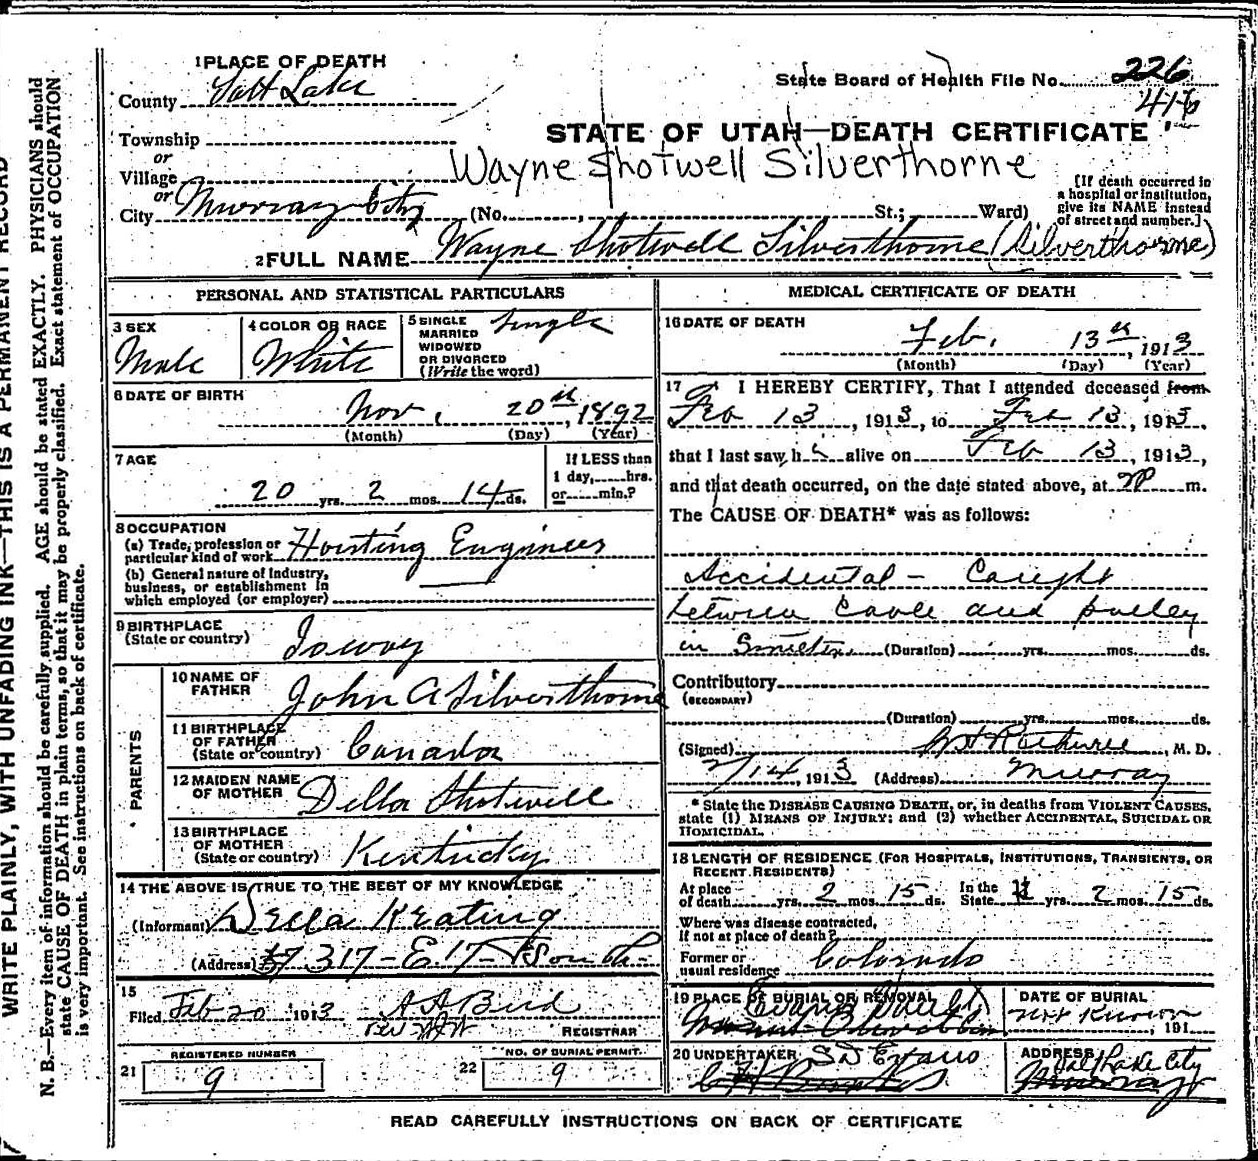 WRITE PLAINLY, WITH UNFADING INK—THIS IS A PERMANENT RECORD
N. B.—Every item of information should be carefully supplied. AGE should be stated EXACTLY. PHYSICIANS should
state CAUSE OF DEATH in plain terms, so that it may be properly classified. Exact statement of OCCUPATION
is very important. See instructions on back of certificate.
1 PLACE OF DEATH
County Salt Lake
State Board of Health File No. 226
416
Township
or
STATE OF UTAH—DEATH CERTIFICATE
Village
or
Wayne Shotwell Silverthorne
City Murray City (No. , St.; Ward)
[If death occurred in
a hospital or institution,
give its NAME instead
of street and number.]
2 FULL NAME Wayne Shotwell Silverthorne (Silverthorne)
PERSONAL AND STATISTICAL PARTICULARS
3 SEX
Male
4 COLOR OR RACE
White
5 SINGLE
MARRIED
WIDOWED
OR DIVORCED
(Write the word)
Single
6 DATE OF BIRTH
Nov. 20th, 1892
(Month) (Day) (Year)
7 AGE
20 yrs. 2 mos. 14 ds.
If LESS than
1 day, hrs.
or min.?
8 OCCUPATION
(a) Trade, profession or
particular kind of work Hoisting Engineer
(b) General nature of Industry,
business, or establishment in
which employed (or employer)
9 BIRTHPLACE
(State or country)Ioway
PARENTS
10 NAME OF
FATHER John A Silverthorne
11 BIRTHPLACE
OF FATHER
(State or country) Canada
12 MAIDEN NAME
OF MOTHER Della Shotwell
13 BIRTHPLACE
OF MOTHER
(State or country) Kentucky
14 THE ABOVE IS TRUE TO THE BEST OF MY KNOWLEDGE
(Informant) Della Keating
(Address) 317-E 17- South-
15
Filed Feb 20 1913 A A Bird
REGISTRAR
REGISTERED NUMBER
21 9
NO. OF BURIAL PERMIT.
22 9
MEDICAL CERTIFICATE OF DEATH
16 DATE OF DEATH
Feb. 13th, 1913
(Month) (Day) (Year)
17 I HEREBY CERTIFY, That I attended deceased from
Feb 13, 1913, to Feb 13, 1913,
that I last saw h i alive on Feb 13, 1913,
and that death occurred, on the date stated above, at m.
The CAUSE OF DEATH* was as follows:
Accidental - Caught
between Cable and pulley
in Smelter. (Duration) yrs. mos. ds.
Contributory
(SECONDARY)
(Duration) yrs. mos. ds.
(Signed) , M. D.
2/14, 1913 (Address) Murray
* State the DISEASE CAUSING DEATH, or, in deaths from VIOLENT CAUSES,
state (1) MEANS OF INJURY; and (2) whether ACCIDENTAL, SUICIDAL OR
HOMICIDAL.
18 LENGTH OF RESIDENCE (FOR HOSPITALS, INSTITUTIONS, TRANSIENTS, OR
RECENT RESIDENTS)
At place
of death yrs. 2 mos. 15 ds. In the
State yrs. 2 mos. 15 ds.
Where was disease contracted,
if not at place of death?
Former or
usual residence Colorado
19 PLACE OF BURIAL OR REMOVAL
DATE OF BURIAL
Not Known, 191
20 UNDERTAKER S D Evans
ADDRESS Salt Lake City
Murray
READ CAREFULLY INSTRUCTIONS ON BACK OF CERTIFICATE